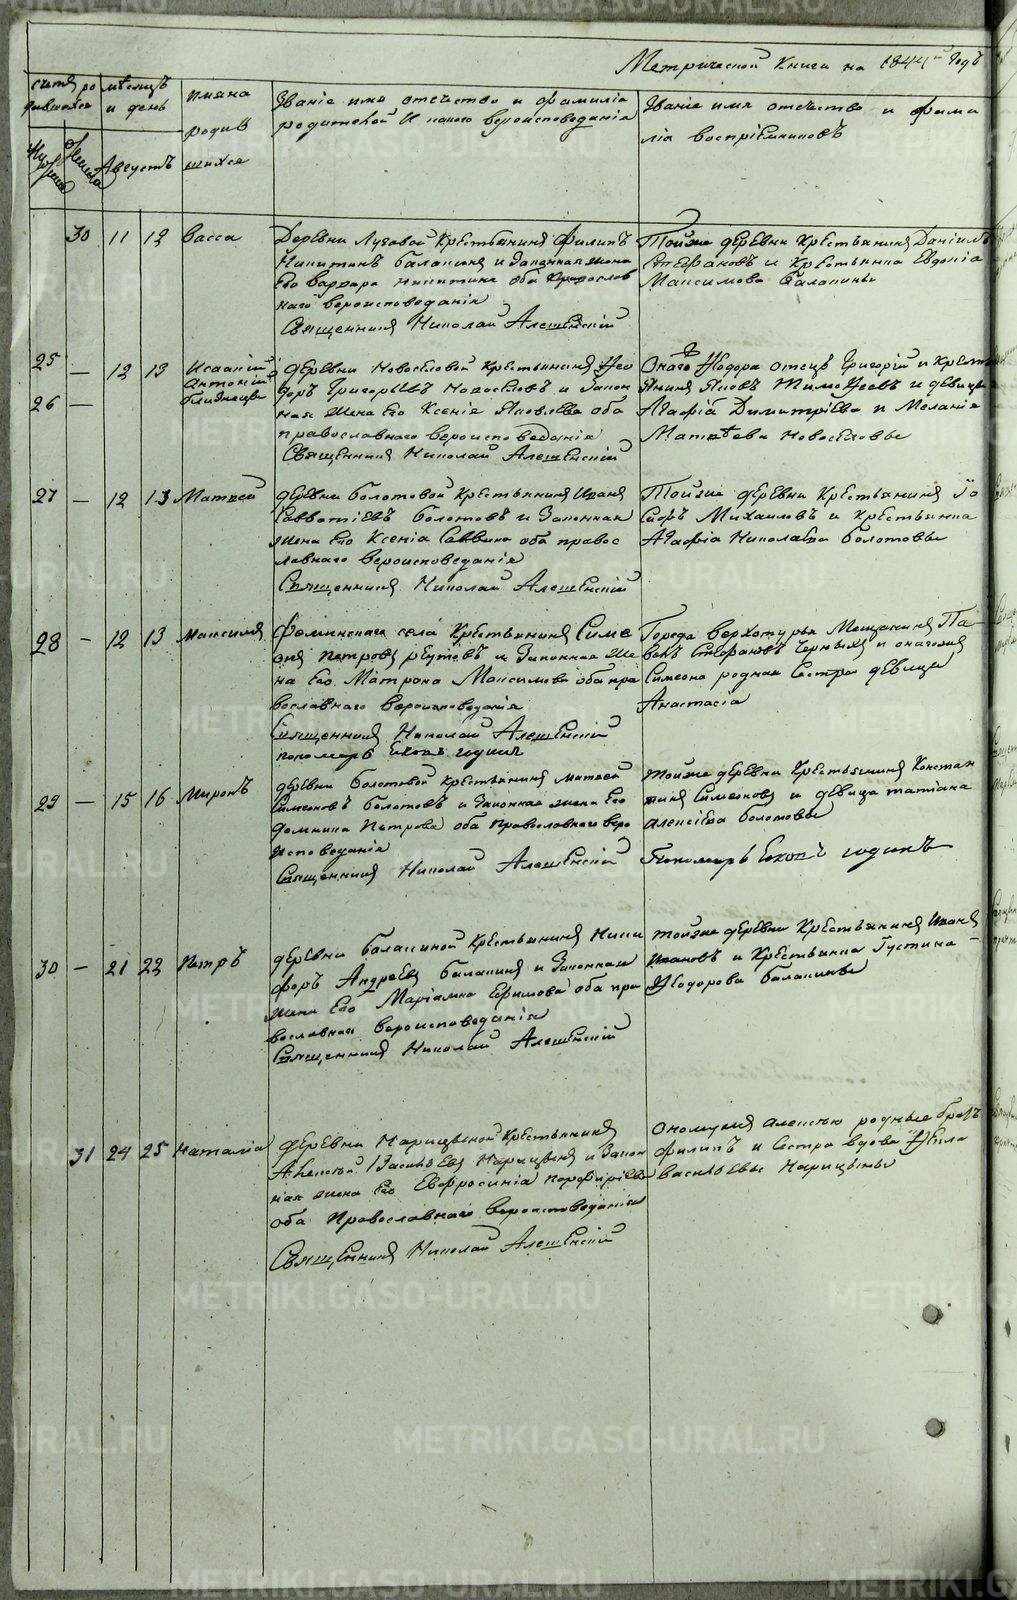 Метрической книги на 1844й Годъ
счетъ ро
месяцъ
и день
имяна
родив
шихся
Августъ
Званіе имя отечество и фамилія
родителей И какого вероисповеданія
Званіе имя отечество и фами
лія воспріемниковъ
30 11 12 Васса
Деревни Луговой Крестьянинъ Филипъ
Никитинъ Балакинъ и Законная жена
Его Варвара Никитина оба Православ
наго вероисповеданія
Священникъ Николай Алешенскій
Тойже деревни Крестьянинъ Даніилъ
Стефановъ и Крестьянка Евдокія
Максимова Балакины
25 — 12 13 Исаакій
26 — Антоній
близнецы
деревни Новоселовой Крестьянинъ Ѳео
доръ Григорьевъ Новоселовъ и Закон
ная жена Его Ксенія Яковлева оба
православнаго вероисповеданія
Священникъ Николай Алешенскій
Онаго Ѳеодора отецъ Григорій и Крест
янинъ Яковъ Тимоѳеевъ и девицы
Агафія Димитріева и Меланія
Матвеева Новоселовы
27 — 12 13 Матвей
деревни Болотовой Крестьянинъ Иванъ
Савватіевъ Болотовъ и Законная
жена Его Ксенія Саввина оба правос
лавнаго вероисповеданія
Священникъ Николай Алешенскій
Тойже деревни Крестьянинъ Іо
сифъ Михаиловъ и Крестьянка
Агафіа Николаева Болотовы
28 — 12 13 Максимъ
Фоминскаго села Крестьянинъ Симе
онъ Петровъ Реутовъ и Законная же
на Его Матрона Максимова оба пра
вославнаго вероисповеданія
Священникъ Николай Алешенскій
пономарь Годинъ
Города Верхотурья Мещанинъ Па
велъ Стефановъ Черныхъ и онагожъ
Симеона родная Сестра девица
Анастасіа
29 — 15 16 Миронъ
деревни Болотовой крестьянинъ Матвей
Симеоновъ Болотовъ и Законная жена Его
Домнина Петрова оба Православнаго веро
исповеданія
Священникъ Николай Алешенскій
тойже деревни Крестьянинъ Констан
тинъ Симеоновъ и девица татіана
Алексіева Болотовы
Пономарь Годинъ
30 — 21 22 Петръ
деревни Балакиной Крестьянинъ Ники
форъ Андреевъ Балакинъ и Законная
жена Его Маріамна Ефимова оба пра
вославнаго вероисповеданія
Священникъ Николай Алешенскій
тойже деревни Крестьянинъ Иванъ
Ивановъ и Крестьянка Густина —
Ѳеодорова Балакины
31 24 25 Наталіа
деревни Нарицыной Крестьянинъ
Алексей Васильевъ Нарицынъ и Закон
ная жена Его Евфросинія Порфиріева
оба Православнаго вероисповеданія
Священникъ Николай Алешенскій
Ономужъ Алексею родные братъ
Филипъ и Сестра вдова Ѳекла
Васильевы Нарицыны
METRIKI.GASO-URAL.RU